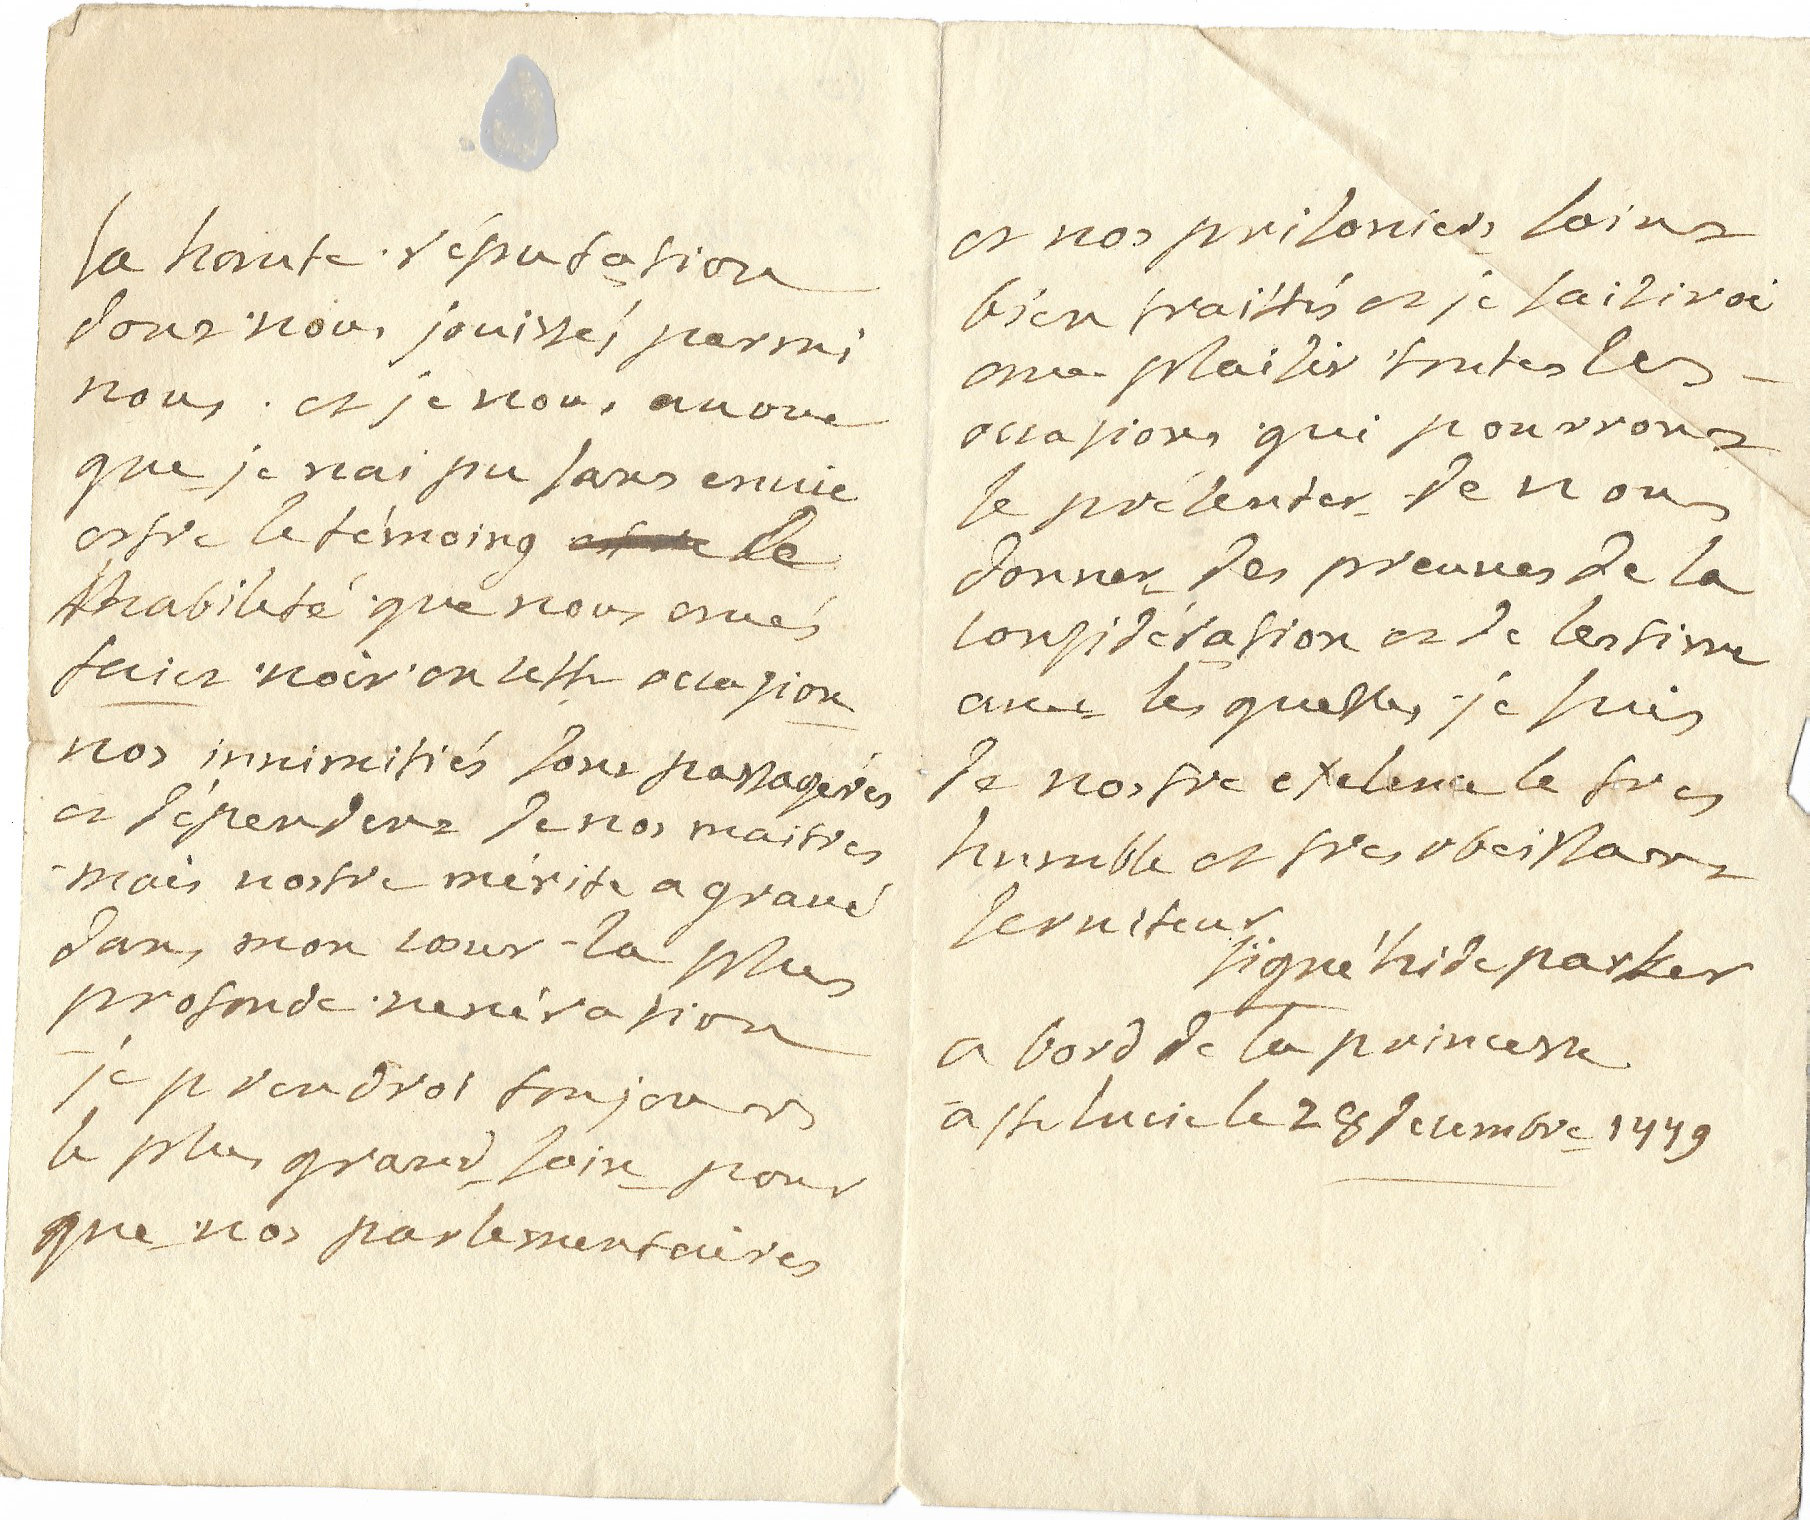 la haute réputation
dont vous jouissés parmi
nous. et je vous avoue
que je nai pu sans envie
estre le témoing de
lhabileté que vous avés
faict voir en cette occasion
nos innimitiés sont passagéres
et dépendent de nos maitres
mais vostre mérite a gravé
dans mon coeur la plus
profonde vénération
je prendroi toujours
le plus grand soin pour
que vos parlementaires
et vos prisoniers soint
bien traittés et je saisiroi
avec plaisir toutes les
occasions qui pourront
se présenter de vous
donner des preuves de la
considération et de lestime
avec les quelles je suis
de vostre exelence le tres
humble et tres obeissant
serviteur
signé hide parker
a bord de la princesse
a ste lucie le 28 decembre 1779